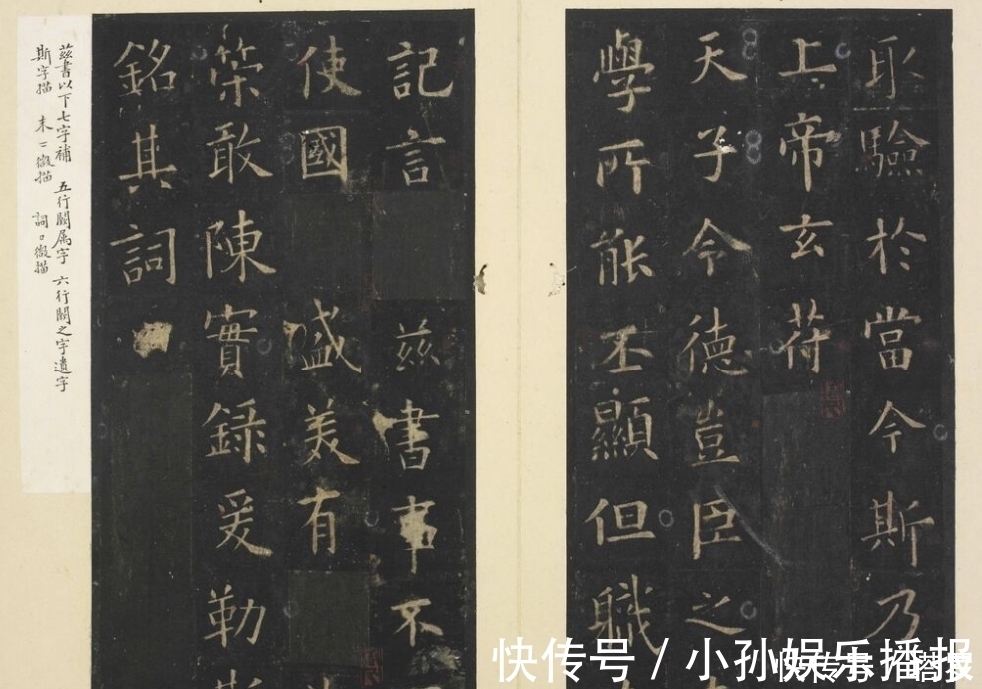 耴驗於當今斯乃
上帝玄苻
天子令德豈臣之
學所能丕顯但職
記言茲書事不
使國盛美有
策敢陳實錄爰勒
銘其詞
茲書以下七字補 五行闕属字 六行闕之字遺字
斯字描 末二微描 詞口微描
快传号 / 小孙娱乐播报